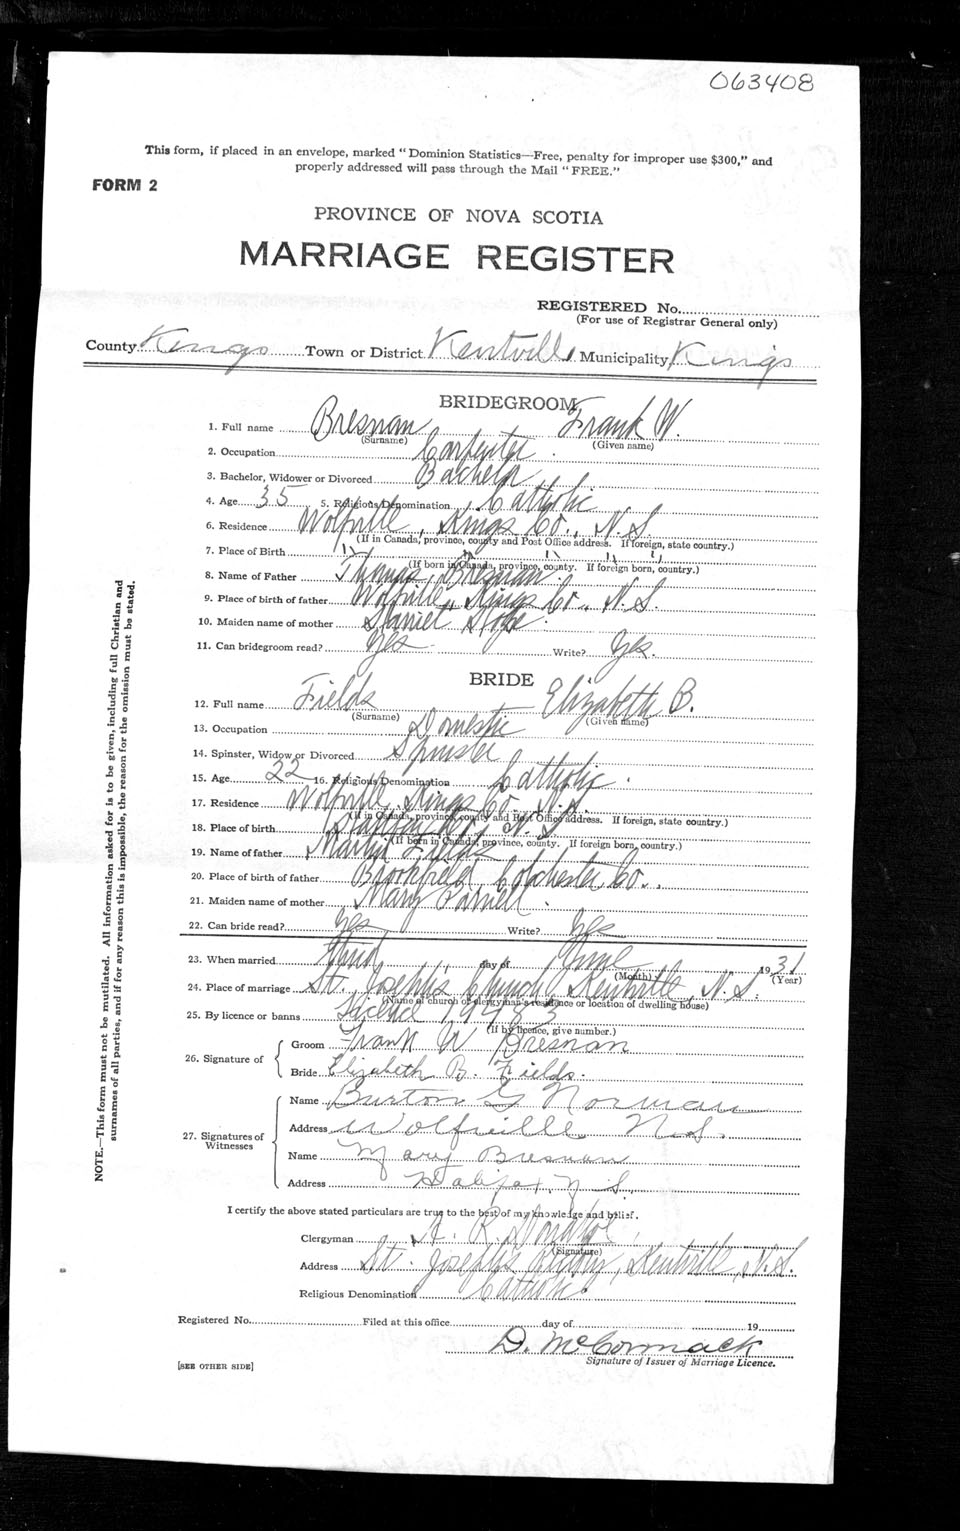 063408
This form, if placed in an envelope, marked "Dominion Statistics—Free, penalty for improper use $300," and
properly addressed will pass through the Mail "FREE."
FORM 2
PROVINCE OF NOVA SCOTIA
MARRIAGE REGISTER
REGISTERED No.
(For use of Registrar General only)
County Kings Town or District Kentville Municipality Kings
BRIDEGROOM
1. Full name Bresnan Frank W.
(Surname) (Given name)
2. Occupation Carpenter
3. Bachelor, Widower or Divorced Bachelor
4. Age 35 5. Religious Denomination Catholic
6. Residence Wolfville, Kings Co., N.S.
(If in Canada, province, county and Post Office address. If foreign, state country.)
7. Place of Birth " " " " "
(If born in Canada, province, county. If foreign born, country.)
8. Name of Father Thomas Bresnan
9. Place of birth of father Wolfville, Kings Co., N.S.
10. Maiden name of mother
11. Can bridegroom read? Yes Write? Yes.
BRIDE
12. Full name Fields Elizabeth B.
(Surname) (Given name)
13. Occupation Domestic
14. Spinster, Widow or Divorced Spinster
15. Age 22 16. Religious Denomination Catholic.
17. Residence Wolfville, Kings Co. N.S.
(If in Canada, province, county and Post Office address. If foreign, state country.)
18. Place of birth Co., N.S.
(If born in Canada, province, county. If foreign born, country.)
19. Name of father Martin Fields
20. Place of birth of father Brookfield, Colchester Co.,
21. Maiden name of mother Mary
22. Can bride read? Yes Write? Yes
23. When married day of June 1931
(Month) (Year)
24. Place of marriage St. Joseph's Church, Kentville, N.S.
(Name of church or clergyman's residence or location of dwelling house)
25. By licence or banns Licence 19483
(If by licence, give number.)
26. Signature of
Groom Frank W Bresnan
Bride Elizabeth B. Fields.
27. Signatures of Witnesses
Name Burton G Norman
Address Wolfville N.S.
Name Mary Bresnan
Address Halifax, N.S.
I certify the above stated particulars are true to the best of my knowledge and belief.
Clergyman
(Signature)
Address St. Joseph's Kentville, N.S.
Religious Denomination Catholic
Registered No. Filed at this office day of 19
D. McCormack
Signature of Issuer of Marriage Licence.
[SEE OTHER SIDE]
NOTE.—This form must not be mutilated. All information asked for is to be given, including full Christian and
surnames of all parties, and if for any reason this is impossible, the reason for the omission must be stated.